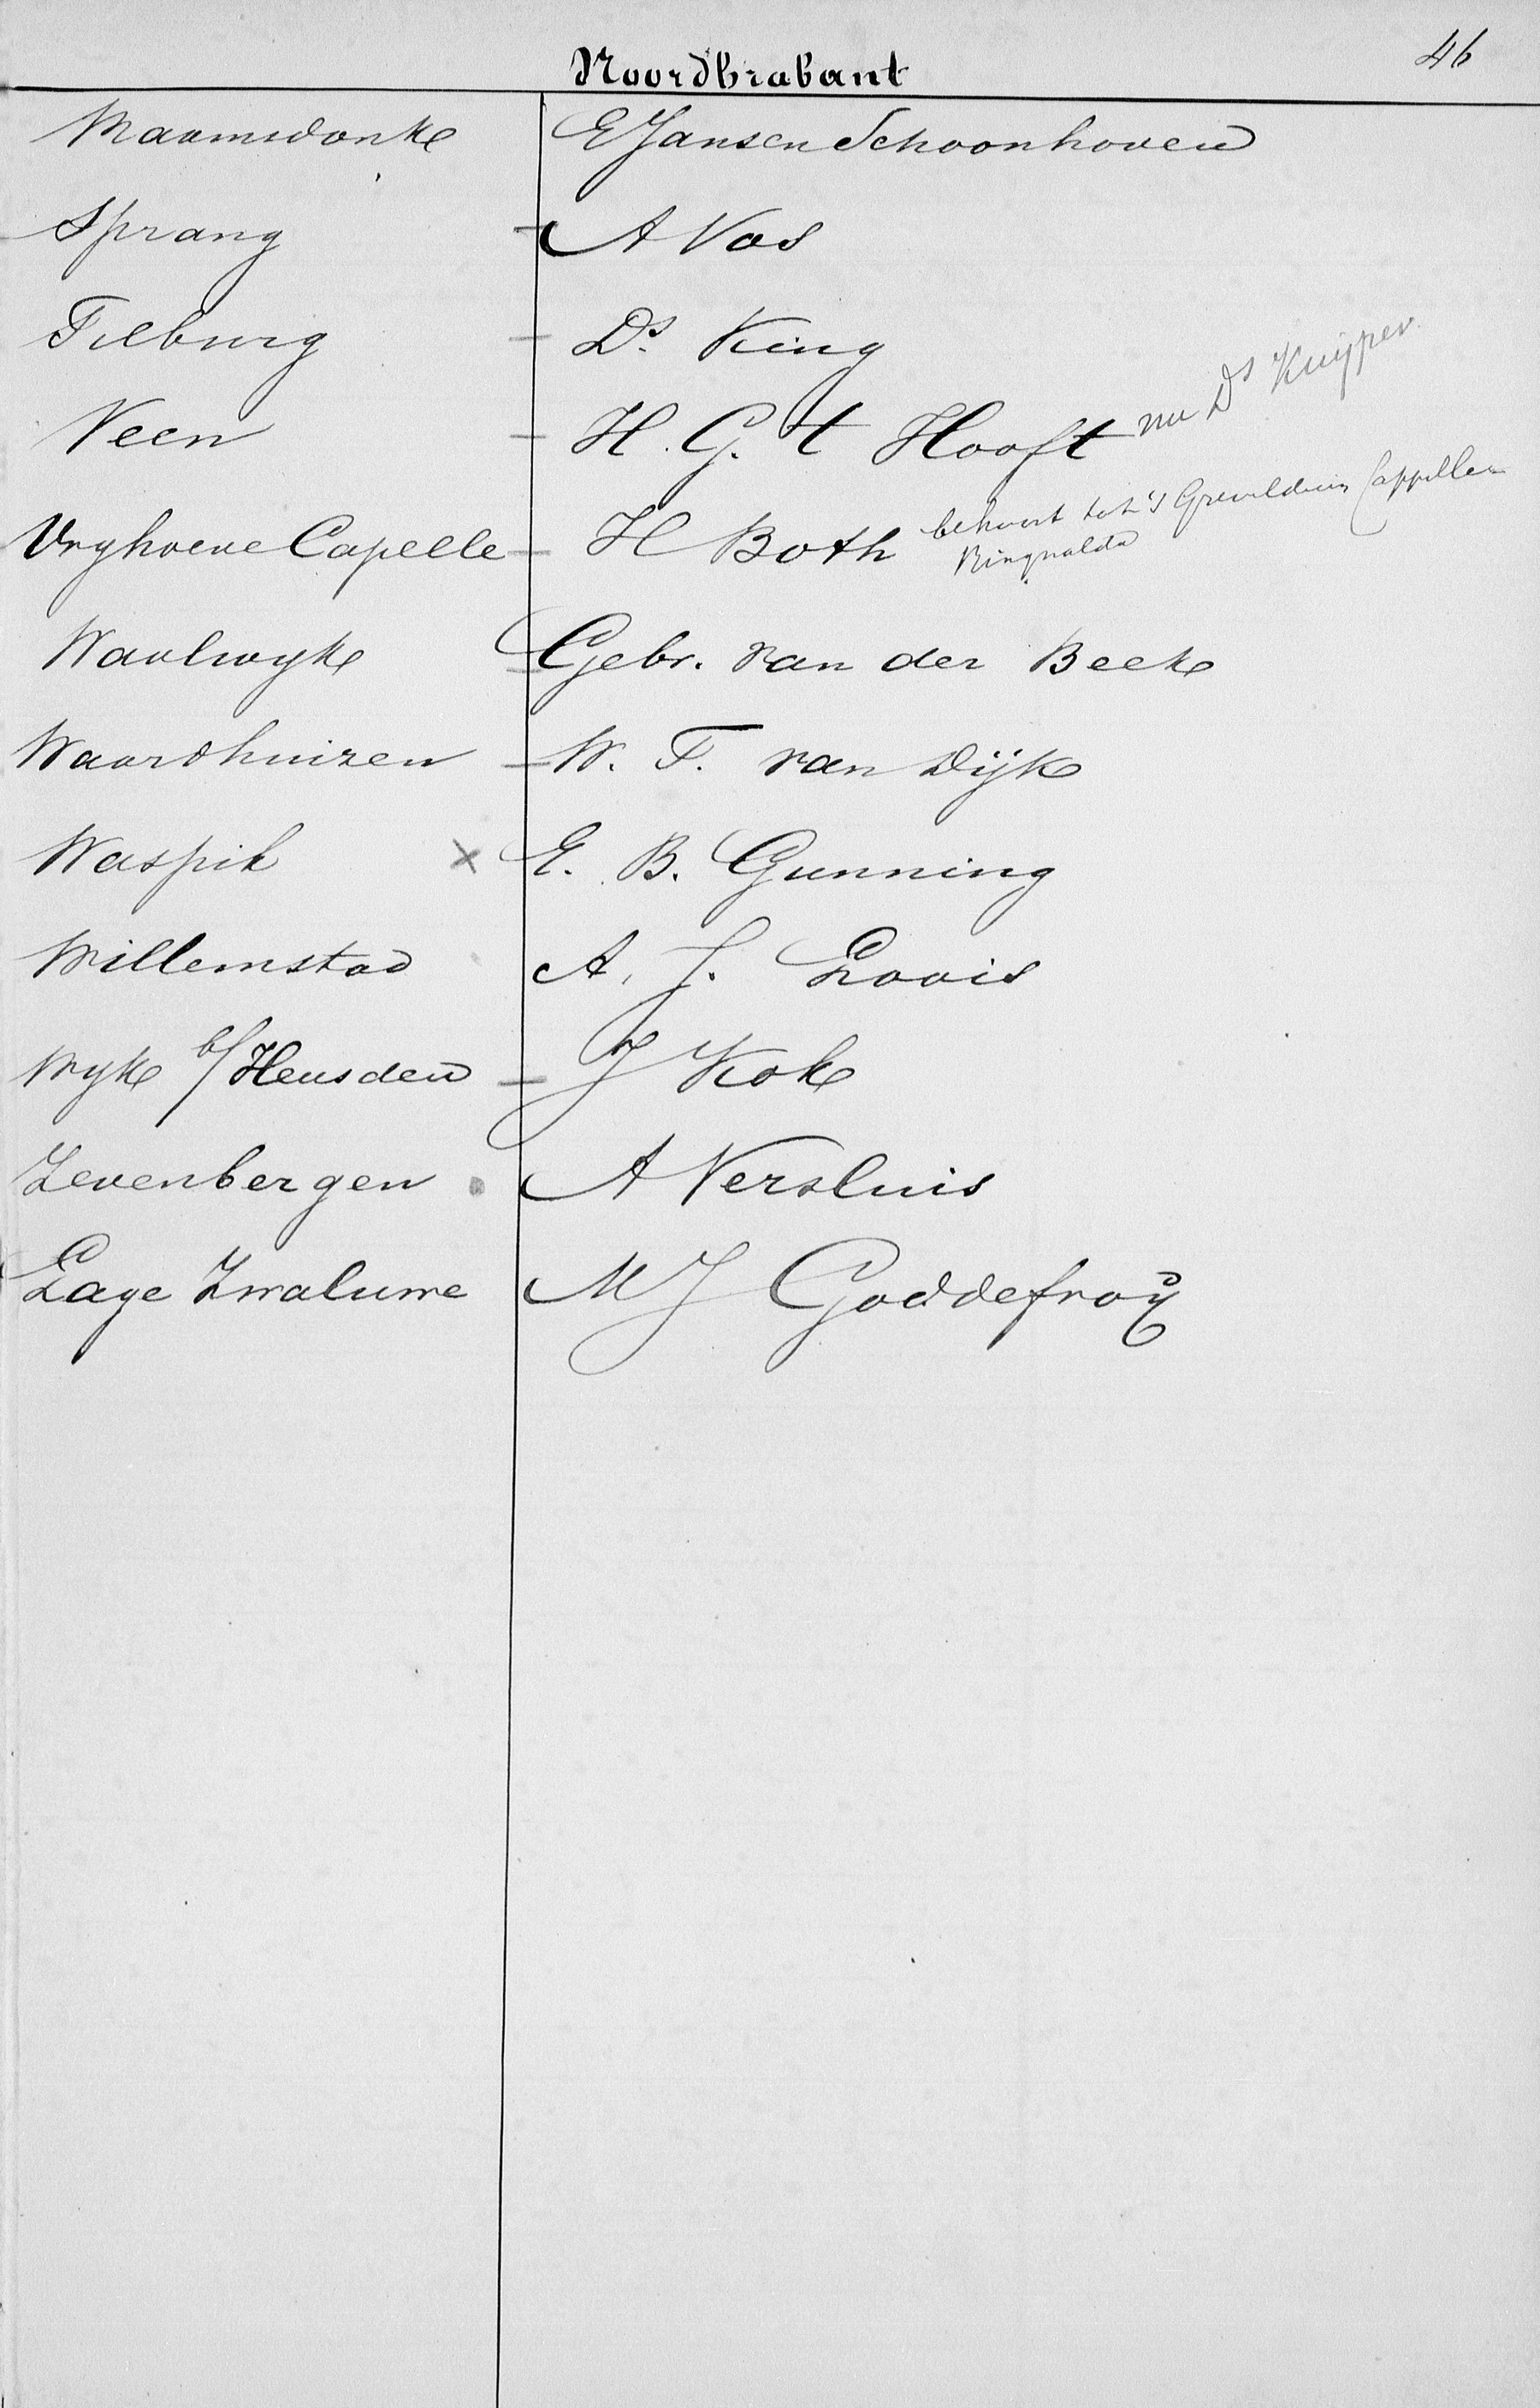 46
Noordbrabant
Raamsdonk E Jansen Schoonhoven
Sprang A Vos
Tilburg Ds. King
Veen H. G. 't Hooft nu Ds Kuijper
Vryhoeve Capelle H Both behoort tot 's Grevelduin Cappellen
Ringnalda
Waalwyk Gebr. van der Beek
Waardhuizen W. F. van Dijk
Waspik x E. B. Gunning
Willemstad A. J. Loois
Wyk b/Heusden J Kok
Zevenbergen A Versluis
Lage Zwaluwe M J Goddefroy